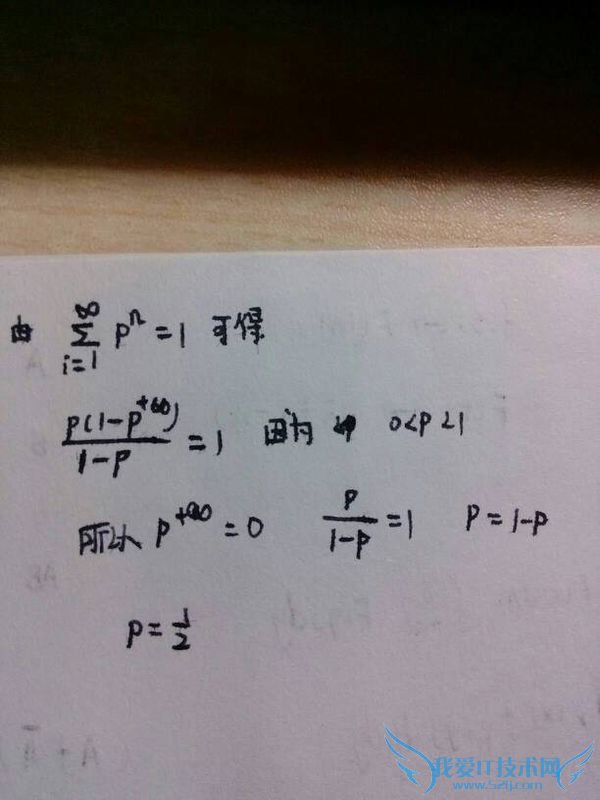 由 ∑_{i=1}^{∞} pⁿ = 1 可得
p(1-p^{+∞})/(1-p) = 1 因为 0<p<1
所以 p^{+∞} = 0 p/(1-p) = 1 p = 1-p
p = 1/2
我爱IT技术网
www.52ij.com